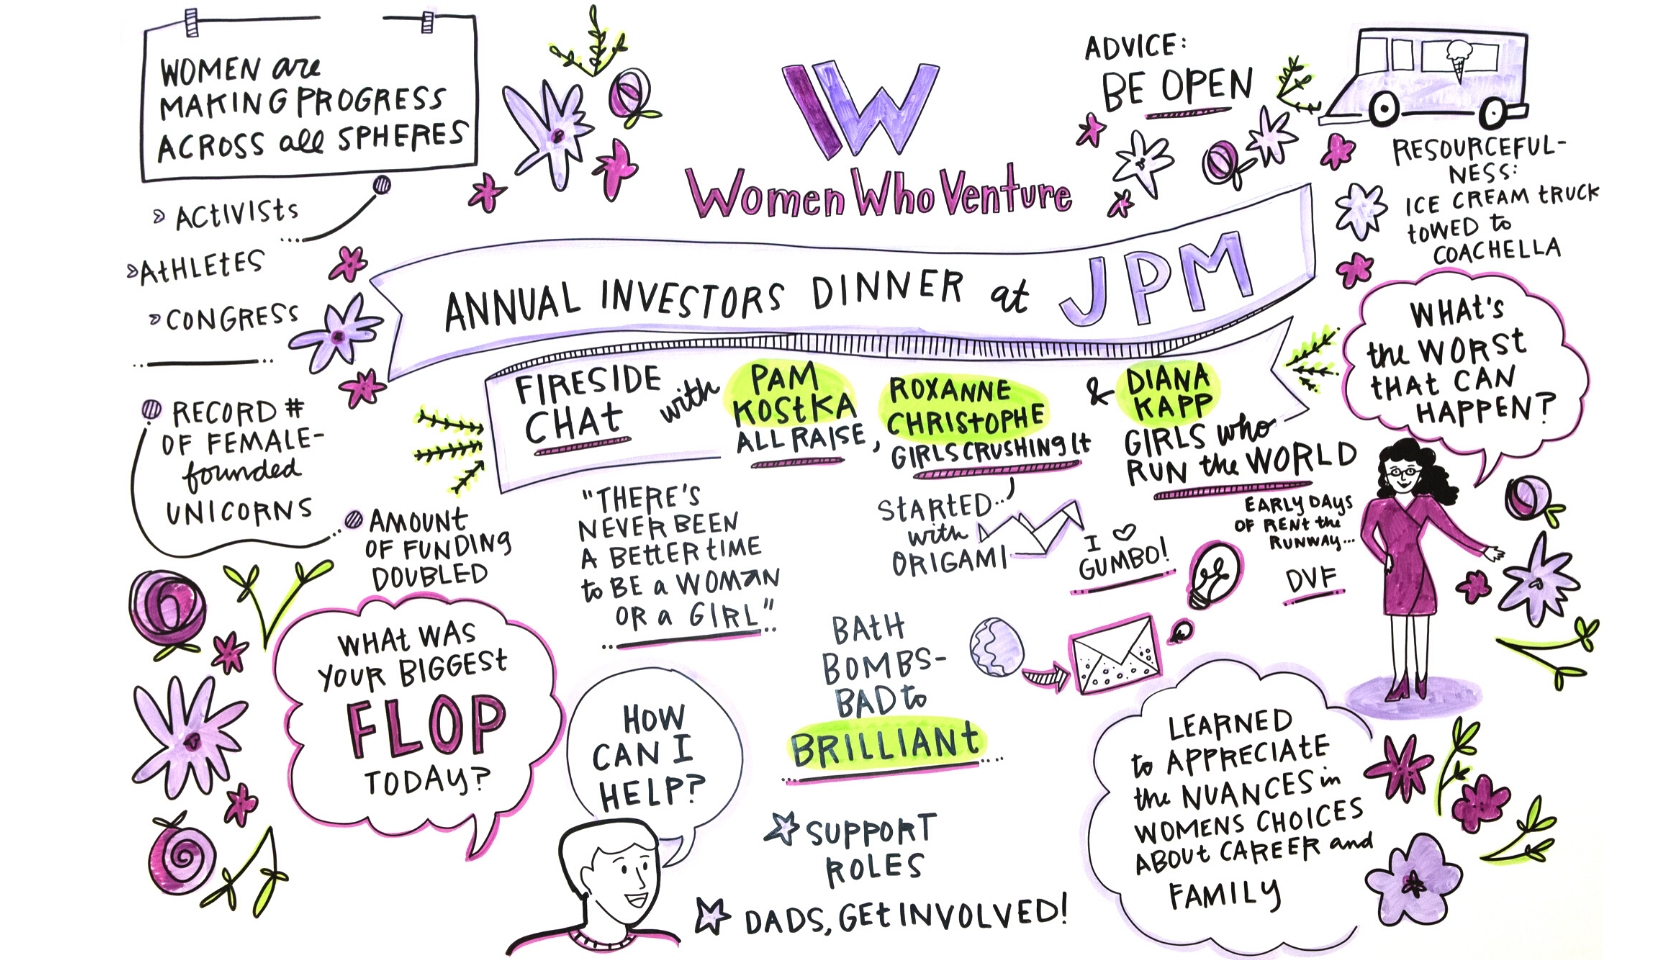 WOMEN are
MAKING PROGRESS
ACROSS all SPHERES
» ACTIVISTS
» ATHLETES
» CONGRESS
RECORD #
OF FEMALE-
founded
UNICORNS
AMOUNT
OF FUNDING
DOUBLED
W
Women Who Venture
ANNUAL INVESTORS DINNER at JPM
FIRESIDE
CHAT
with
PAM
KOSTKA
ALL RAISE,
ROXANNE
CHRISTOPHE
GIRLS CRUSHING It
&
DIANA
KAPP
GIRLS who
RUN the WORLD
ADVICE:
BE OPEN
RESOURCEFUL-
NESS:
ICE CREAM tRUCK
tOWED to
COACHELLA
WHAT'S
the WORST
tHAT CAN
HAPPEN?
"THERE'S
NEVER BEEN
A BEttER tIME
to BE a WOMAN
OR a GIRL"
StARtED...
with
ORIGAMI
I ♡
GUMBO!
EARLY DAYS
OF RENT the
RUNWAY...
DVF
WHAt WAS
YOUR BIGGEST
FLOP
TODAY?
HOW
CAN I
HELP?
BAtH
BOMBS-
BAD to
BRILLIANt
SUPPORT
ROLES
DADS, GEt INVOLVED!
LEARNED
to APPRECIATE
the NUANCES in
WOMENS CHOICES
ABOUt CAREER and
FAMILY